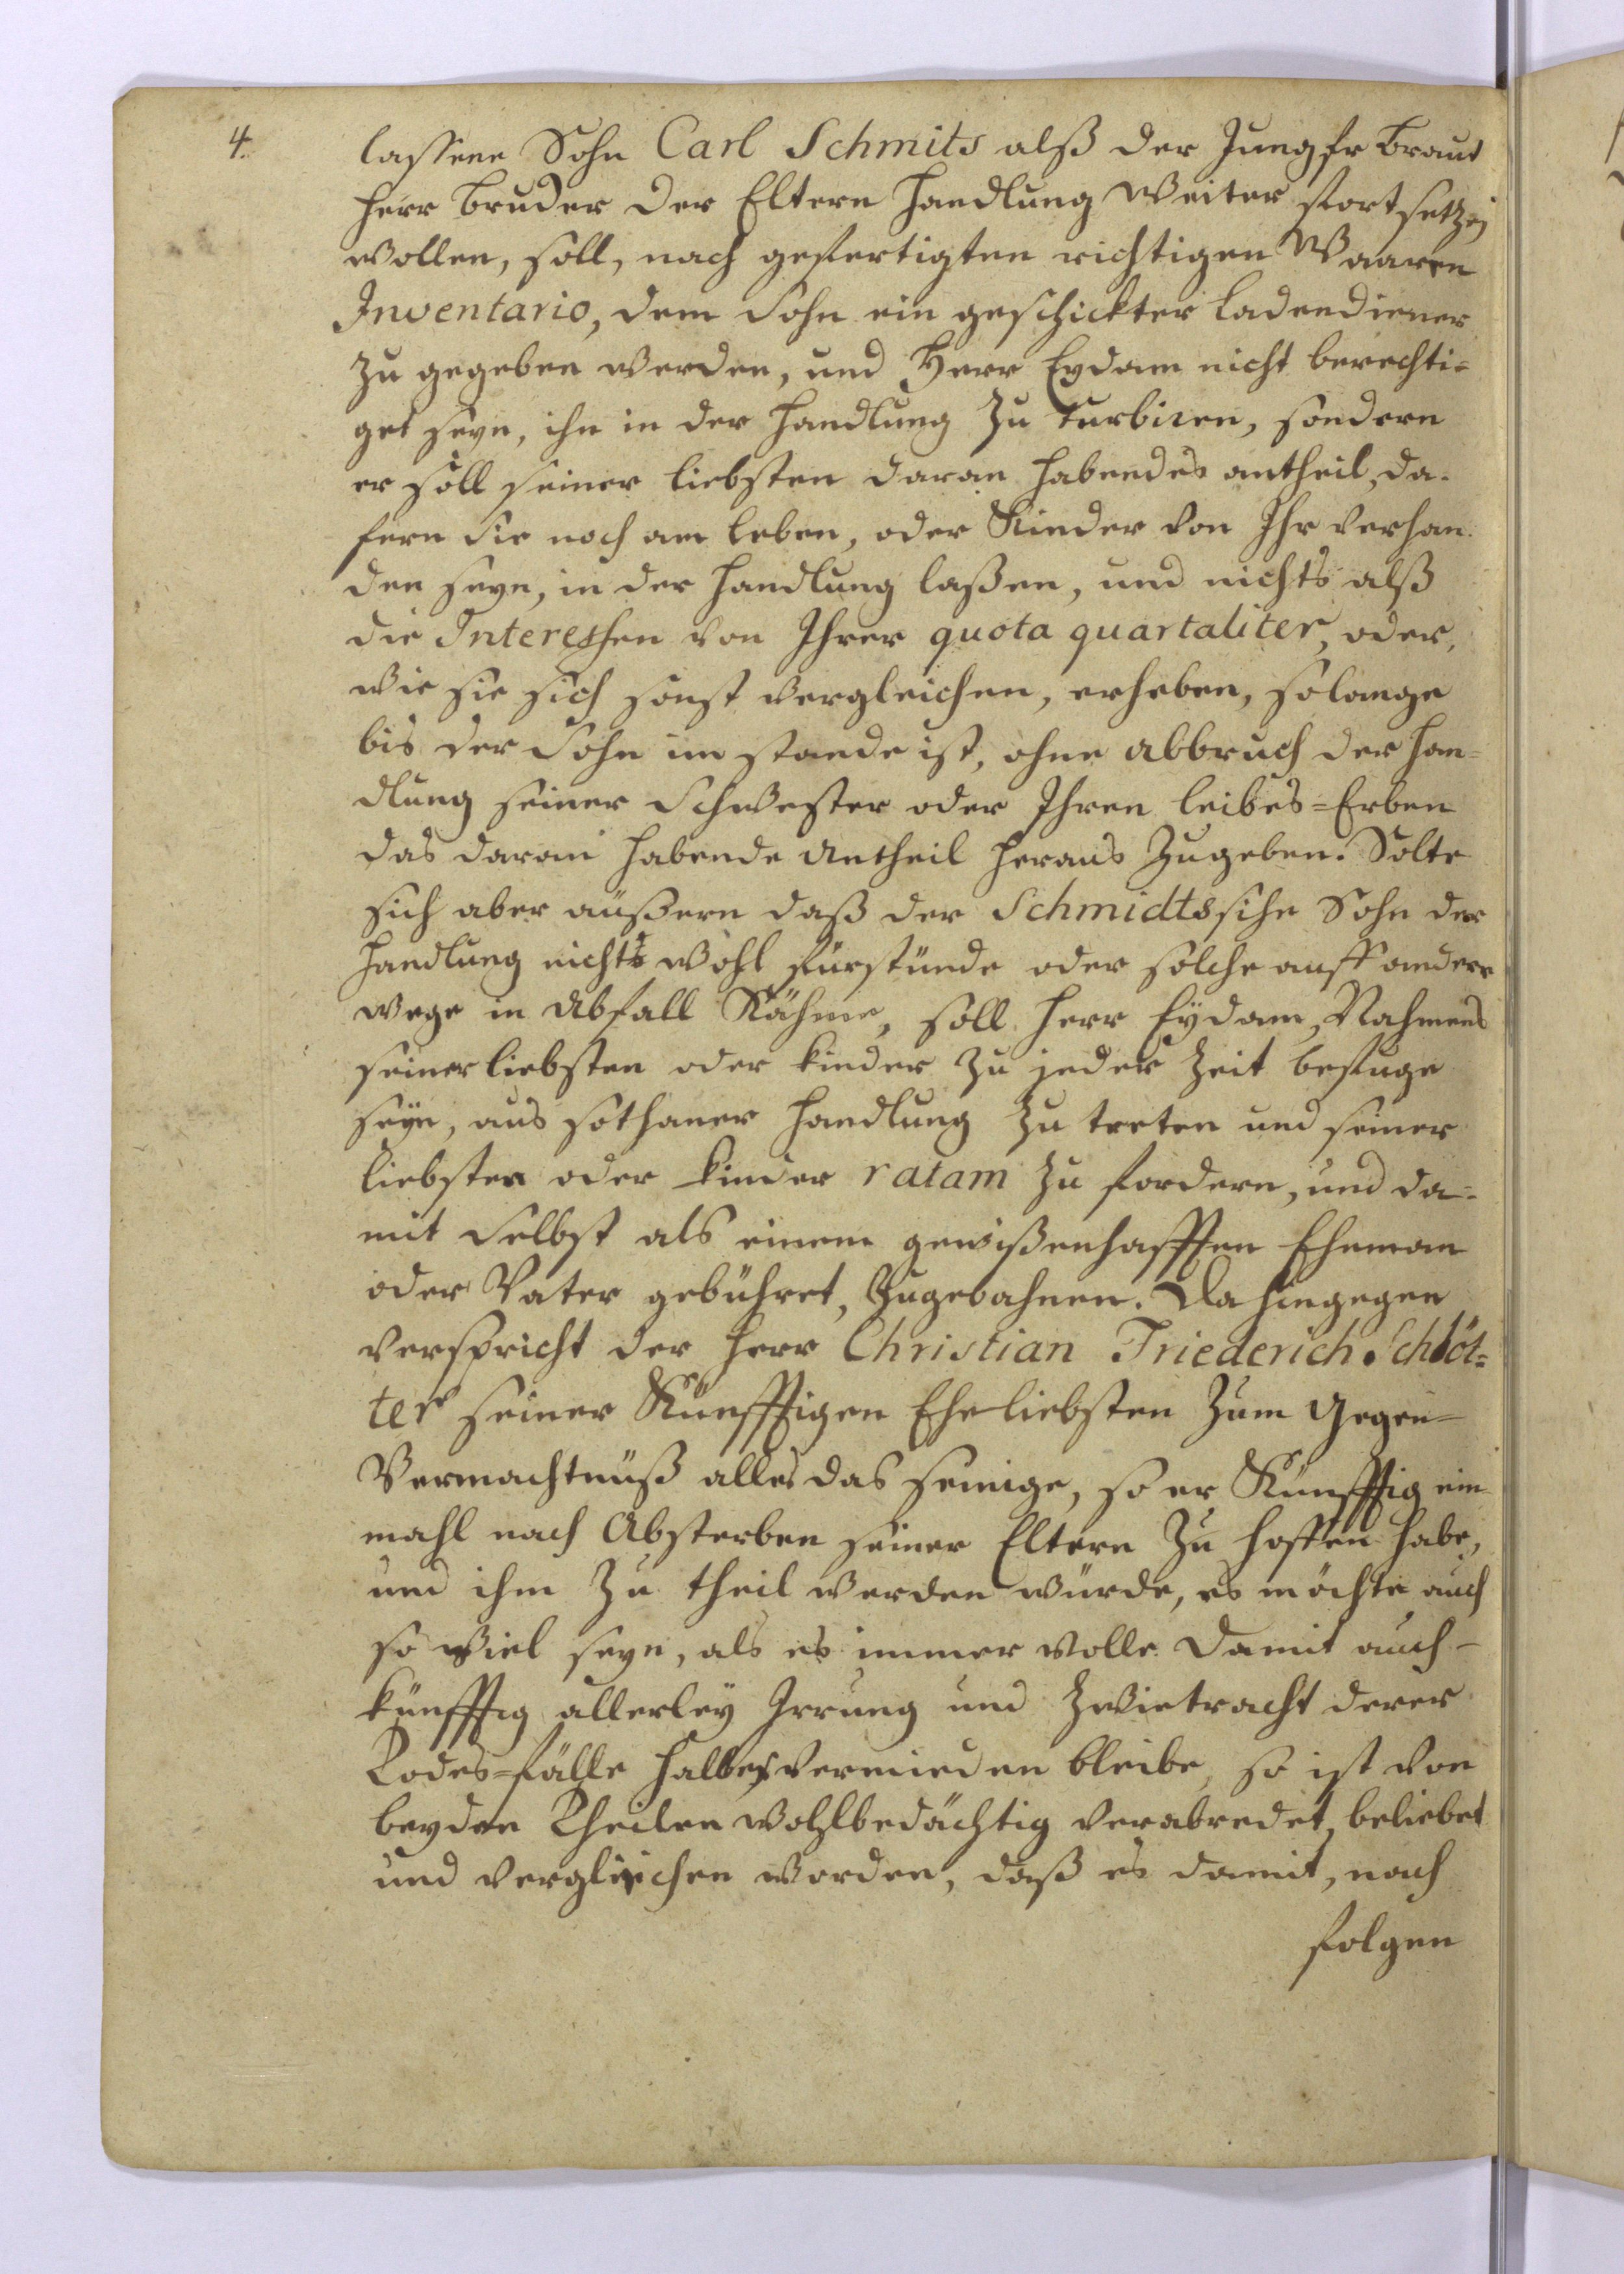 4.
lassene Sohn Carl Schmits alß der Jungfr Braut
Herr Bruder der Eltern Handlung weiter fortsetzen
wollen, soll, nach gefertigten richtigen Waaren
Inventario, dem Sohn ein geschickter Ladendiener
zu gegeben werden, und Herr Eydam nicht berechti=
get seyn, ihn in der Handlung zu turbiren, sondern
er soll seiner liebsten daran habendes antheil, da-
fern Sie noch am leben, oder Kinder von Ihr verhan-
den seyn, in der Handlung laßen, und nichts alß
die Interessen von Ihrer quota quartaliter, oder,
wie sie sich sonst vergleichen, erheben, solange
bis der Sohn im stande ist, ohne abbruch der Han=
dlung seiner Schwester oder Ihren leibes=Erben
das daran habende Antheil heraus zugeben. Solte
sich aber äußern daß der Schmidtssche Sohn der
Handlung nichts wohl fürstünde oder solche auff andere
wege in Abfall Kähme, soll Herr Eydam, Nahmens
seiner liebsten oder kinder zu jeder Zeit befuge
seyn, aus sothaner Handlung zu treten und seiner
liebsten oder kinder ratam zu fordern, und da=
mit selbst als einem gewißenhafften Eheman
oder Vater gebühret, zugebahren. Da hingegen
verspricht der Herr Christian Friederich Schlöt=
ter seiner Künfftigen Eheliebsten zum Gegen=
Vermachtnüß alles das seinige, so er Künfftig ein
mahl nach Absterben seiner Eltern zu hoffen habe,
und ihm zu theil werden würde, es möchte auch
so viel seyn, als es immer wolle. Damit auch-
künfftig allerley Irrung und Zwietracht derer
Todes=fälle halben vermieden bleibe, so ist von
beyden Theilen wohlbedächtig verabredet, beliebet
und verglichen worden, daß es damit, nach
folgen